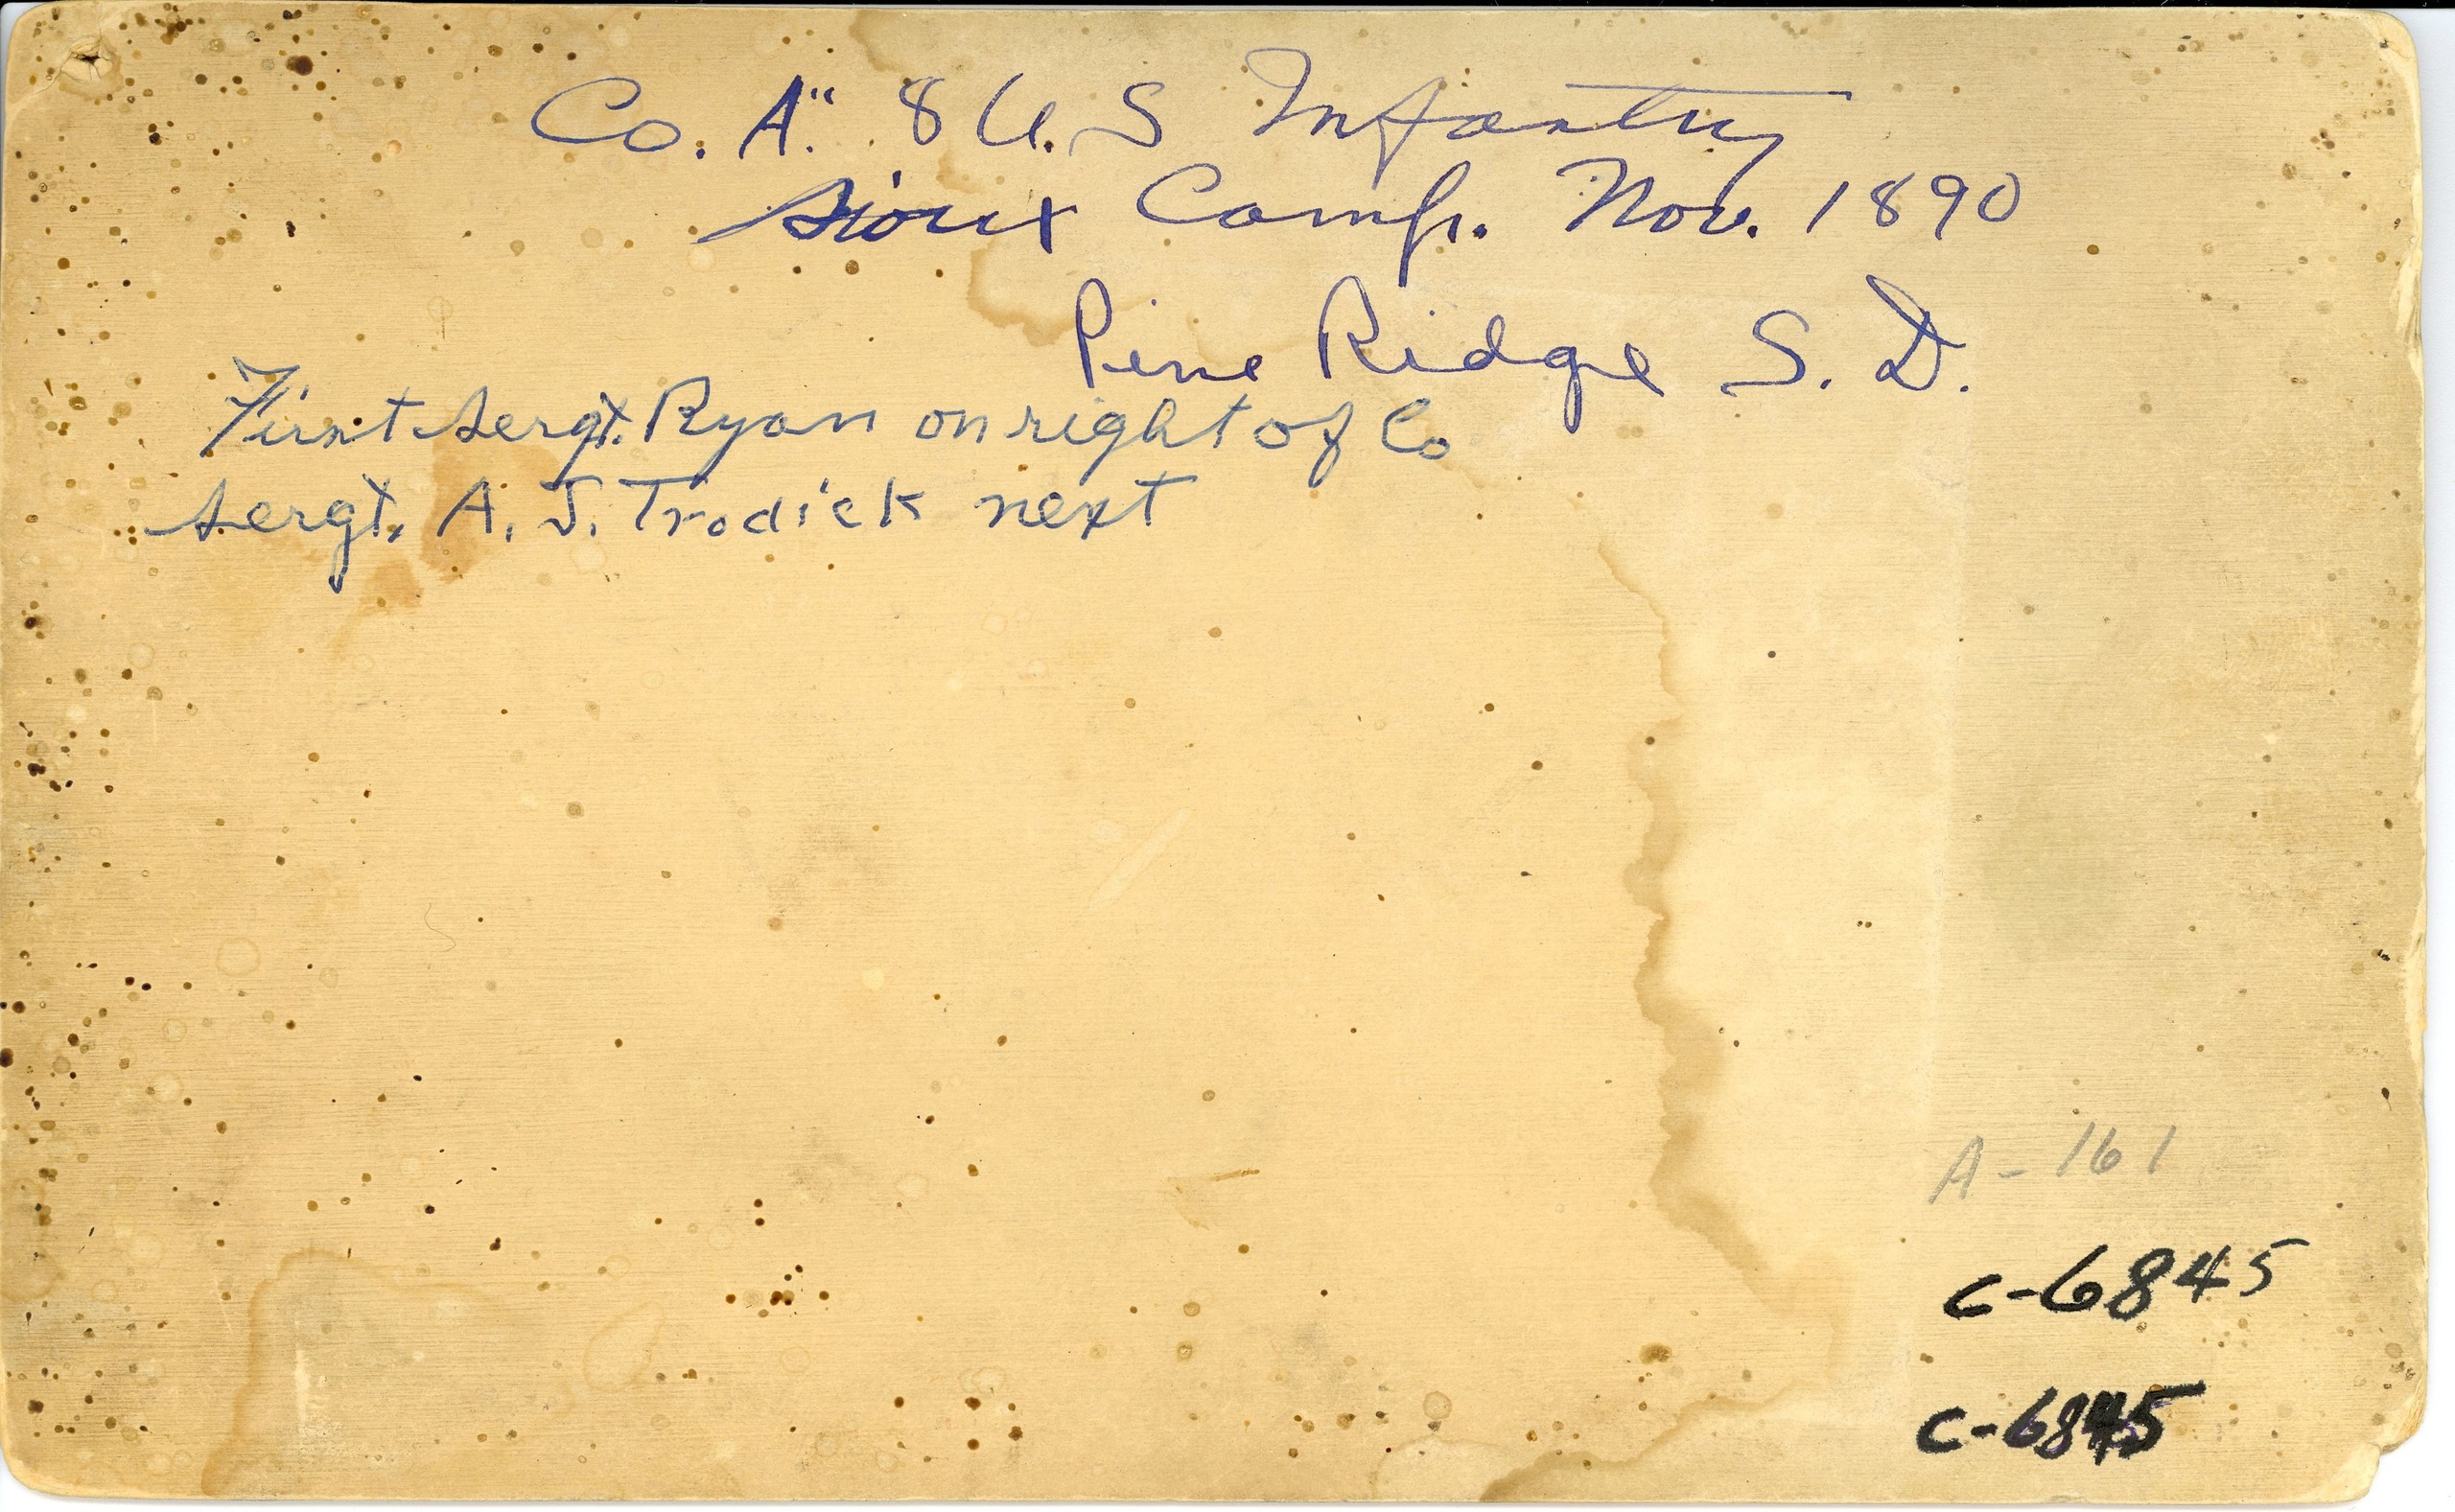 Co. "A". 8 U. S Infantry
Sioux Camp. Nov. 1890
Pine Ridge S. D.
First Sergt. Ryan on right of Co
Sergt. A. J. Trodick next
A-161
C-6845
C-6845